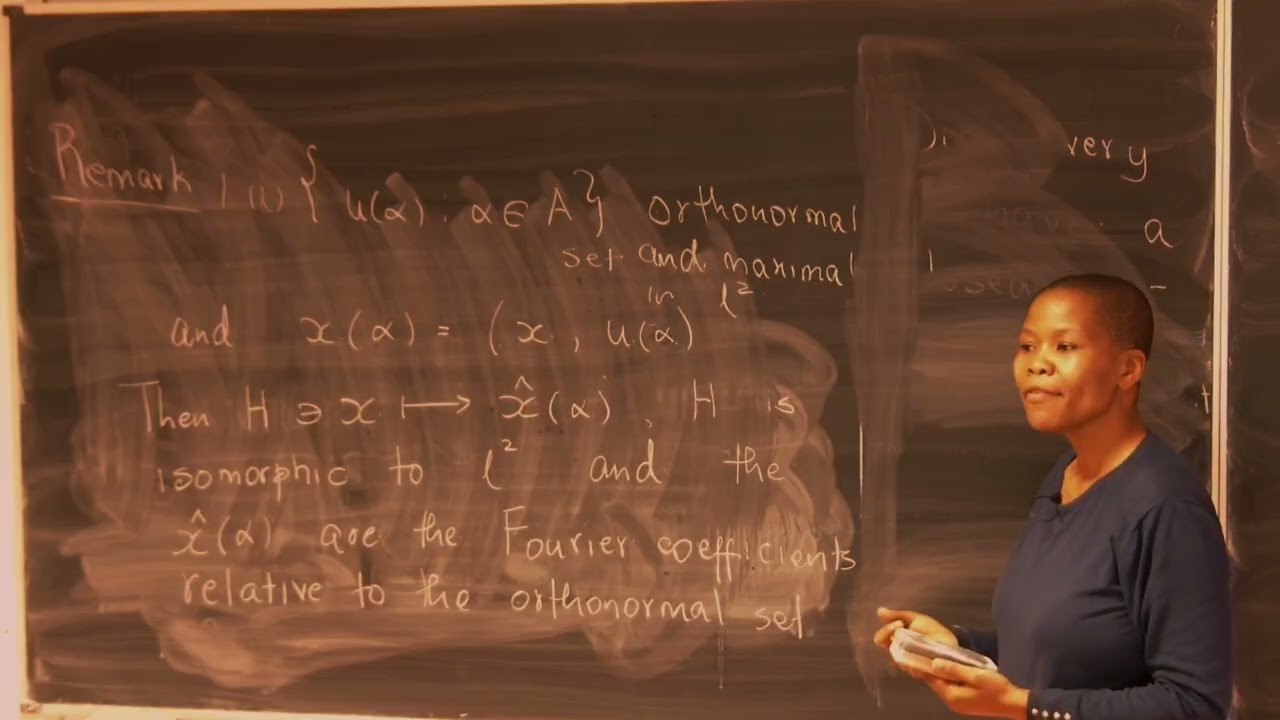 Remark / (1) { u(α) : α ∈ A } orthonormal
set and maximal
in l²
and x(α) = (x, u(α)
Then H ∋ x ⟼ x̂(α), H is
isomorphic to l² and the
x̂(α) are the Fourier coefficients
relative to the orthonormal set
very
a